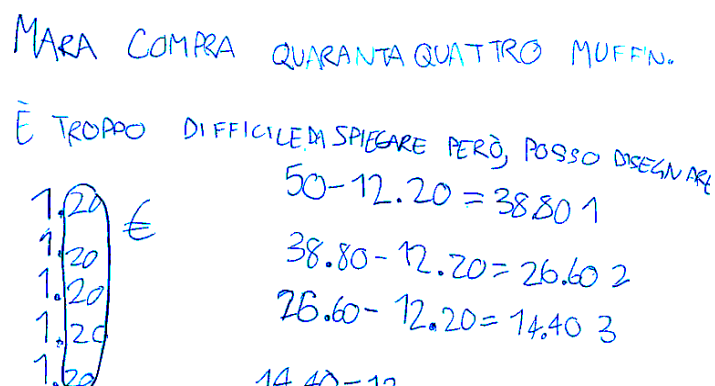 MARA COMPRA QUARANTA QUATTRO MUFFIN.
È TROPPO DIFFICILE DA SPIEGARE PERÒ, POSSO DISEGNARE
1.20 €
1.20
1.20
1.20
1.20
50-12.20 = 38.80 1
38.80- 12.20= 26.60 2
26.60- 12.20= 14.40 3
14.40-12